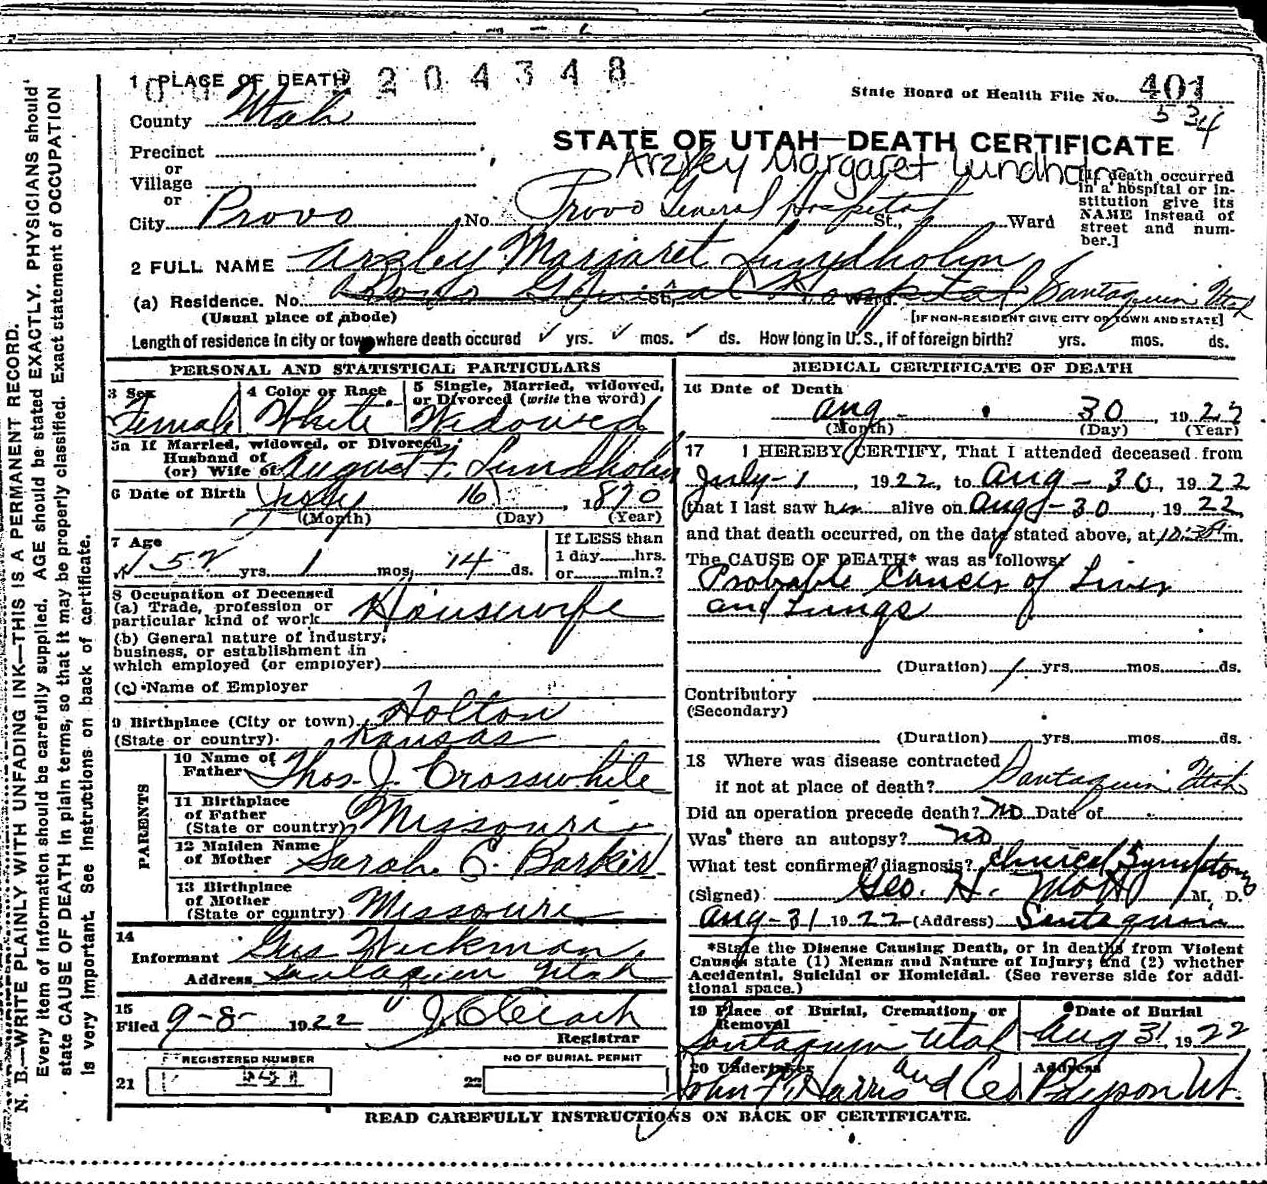 1 PLACE OF DEATH
204348
State Board of Health File No. 401
534
County Utah
STATE OF UTAH—DEATH CERTIFICATE
Precinct
or
Village
or
Arzley Margaret Lundholm
City Provo No. Provo General Hospital St., Ward
[If death occurred in a hospital or institution give its NAME instead of street and number.]
2 FULL NAME Arzley Margaret Lundholm
(a) Residence. No. Provo General Hospital St., Ward. Santaquin Utah
(Usual place of abode) [IF NON-RESIDENT GIVE CITY OR TOWN AND STATE]
Length of residence in city or town where death occured yrs. mos. ds. How long in U. S., if of foreign birth? yrs. mos. ds.
PERSONAL AND STATISTICAL PARTICULARS
3 Sex Female
4 Color or Race White
5 Single, Married, widowed, or Divorced (write the word) Widowed
5a If Married, widowed, or Divorced,
Husband of
(or) Wife of August F. Lundholm
6 Date of Birth July 16, 1870
(Month) (Day) (Year)
7 Age 52 yrs. 1 mos. 14 ds.
If LESS than
1 day hrs.
or min.?
8 Occupation of Deceased
(a) Trade, profession or
particular kind of work Housewife
(b) General nature of industry,
business, or establishment in
which employed (or employer)
(c) Name of Employer
9 Birthplace (City or town) Holton
(State or country) Kansas
PARENTS
10 Name of
Father Thos. J. Crosswhite
11 Birthplace
of Father
(State or country) Missouri
12 Maiden Name
of Mother Sarah E. Barker
13 Birthplace
of Mother
(State or country) Missouri
14
Informant Gus Wickman
Address Santaquin Utah
15
Filed 9-8- 1922
Registrar
REGISTERED NUMBER
21
NO OF BURIAL PERMIT
22
MEDICAL CERTIFICATE OF DEATH
16 Date of Death
Aug - 30 1922
(Month) (Day) (Year)
17 I HEREBY CERTIFY, That I attended deceased from
July-1, 1922, to Aug-30, 1922
that I last saw her alive on Aug-30, 1922,
and that death occurred, on the date stated above, at m.
The CAUSE OF DEATH* was as follows:
Probable Cancer of Liver
and Lungs
(Duration) 1 yrs. mos. ds.
Contributory
(Secondary)
(Duration) yrs. mos. ds.
18 Where was disease contracted
if not at place of death? Santaquin Utah
Did an operation precede death? No Date of
Was there an autopsy? No
What test confirmed diagnosis? Clinical Symptoms
(Signed) Geo. H. Mott M. D.
Aug-31 1922 (Address) Santaquin
*State the Disease Causing Death, or in deaths from Violent
Causes state (1) Means and Nature of Injury; and (2) whether
Accidental, Suicidal or Homicidal. (See reverse side for addi-
tional space.)
19 Place of Burial, Cremation, or
Removal
Santaquin Utah
Date of Burial
Aug 31 1922
20 Undertaker
John F. Harris and Co
Address
Payson Ut.
READ CAREFULLY INSTRUCTIONS ON BACK OF CERTIFICATE.
N. B.—WRITE PLAINLY WITH UNFADING INK—THIS IS A PERMANENT RECORD.
Every item of information should be carefully supplied. AGE should be stated EXACTLY. PHYSICIANS should
state CAUSE OF DEATH in plain terms, so that it may be properly classified. Exact statement of OCCUPATION
is very important. See instructions on back of certificate.